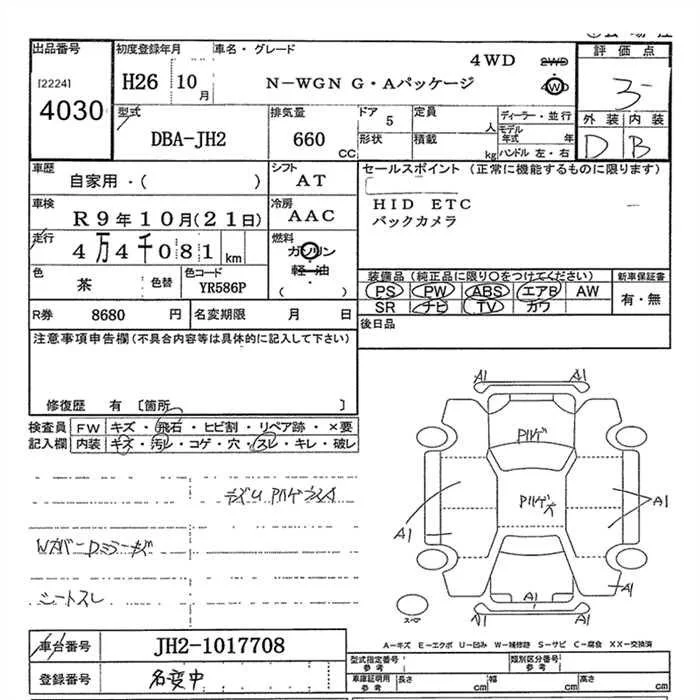 出品番号
[2224]
4030
初度登録年月
H26 10月
車名・グレード
4WD
2WD
4WD
N-WGN G・Aパッケージ
評価点
外装 内装
D B
型式
DBA-JH2
排気量
660 CC
ドア
5
形状
定員
人
積載
kg
ディーラー・並行
モデル年式 年
ハンドル 左・右
車歴
自家用・( )
シフト
AT
車検
R 9年10月(21日)
冷房
AAC
走行
4万4千081 km
燃料
ガソリン
軽油
・
( )
色
茶
色替
色コード
YR586P
R券 8680 円
名変期限 月 日
セールスポイント (正常に機能するものに限ります)
HID ETC
バックカメラ
装備品 (純正品に限り○をつけてください)
PS PW ABS エアB AW
SR ナビ TV カワ
新車保証書
有・無
後日品
注意事項申告欄(不具合内容等は具体的に記入して下さい)
修復歴 有 〔箇所 〕
検査員
記入欄
FW キズ・飛石・ヒビ割・リペア跡・×要
内装 キズ・汚レ・コゲ・穴・スレ・キレ・破レ
シートスレ
A1 A1
A1
A1
A1
A1
A1 A1
A-キズ E-エクボ U-凹み W-補修跡 S-サビ C-腐食 XX-交換済
車台番号
JH2-1017708
登録番号
名変中
型式指定番号
参考
類別区分番号
参考
車庫証明用
参考
長さ
cm
幅
cm
高さ
cm